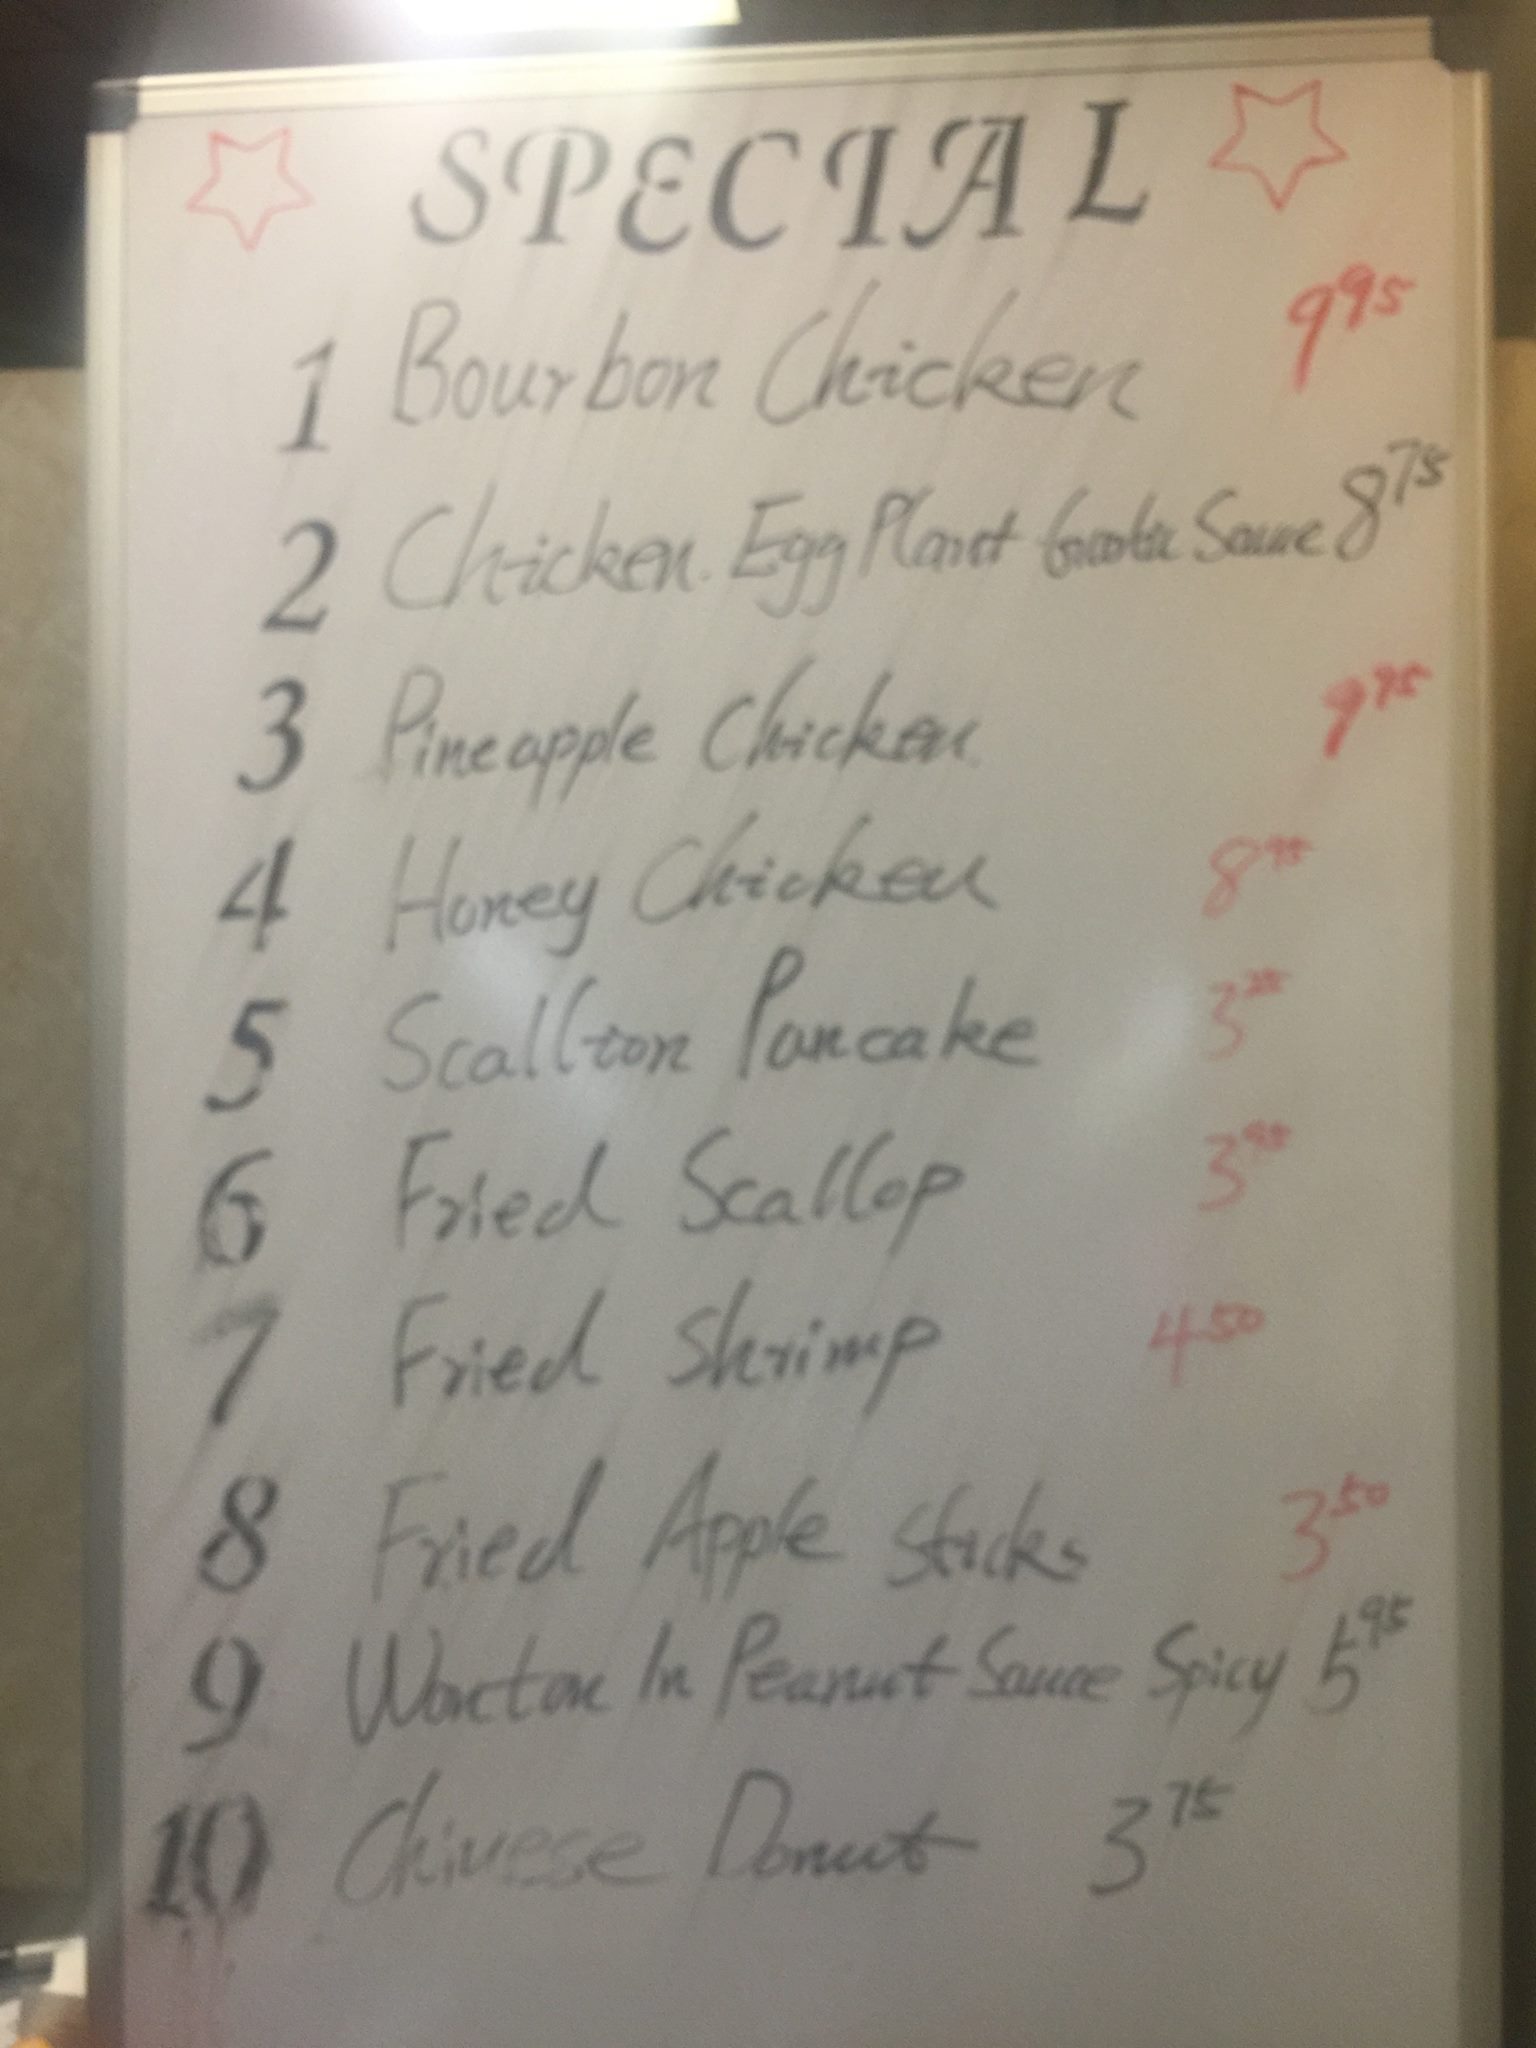 SPECIAL
1 Bourbon Chicken 9 95
2 Chicken. Egg Plant Sauce 8 75
3 Pineapple Chicken 9 95
4 Honey Chicken 8 95
5 Scallion Pancake 3
6 Fried Scallop 3 95
7 Fried Shrimp 4 50
8 Fried Apple Sticks 3 50
9 Wonton In Peanut Sauce Spicy 5 95
10 Chinese Donut 3 75